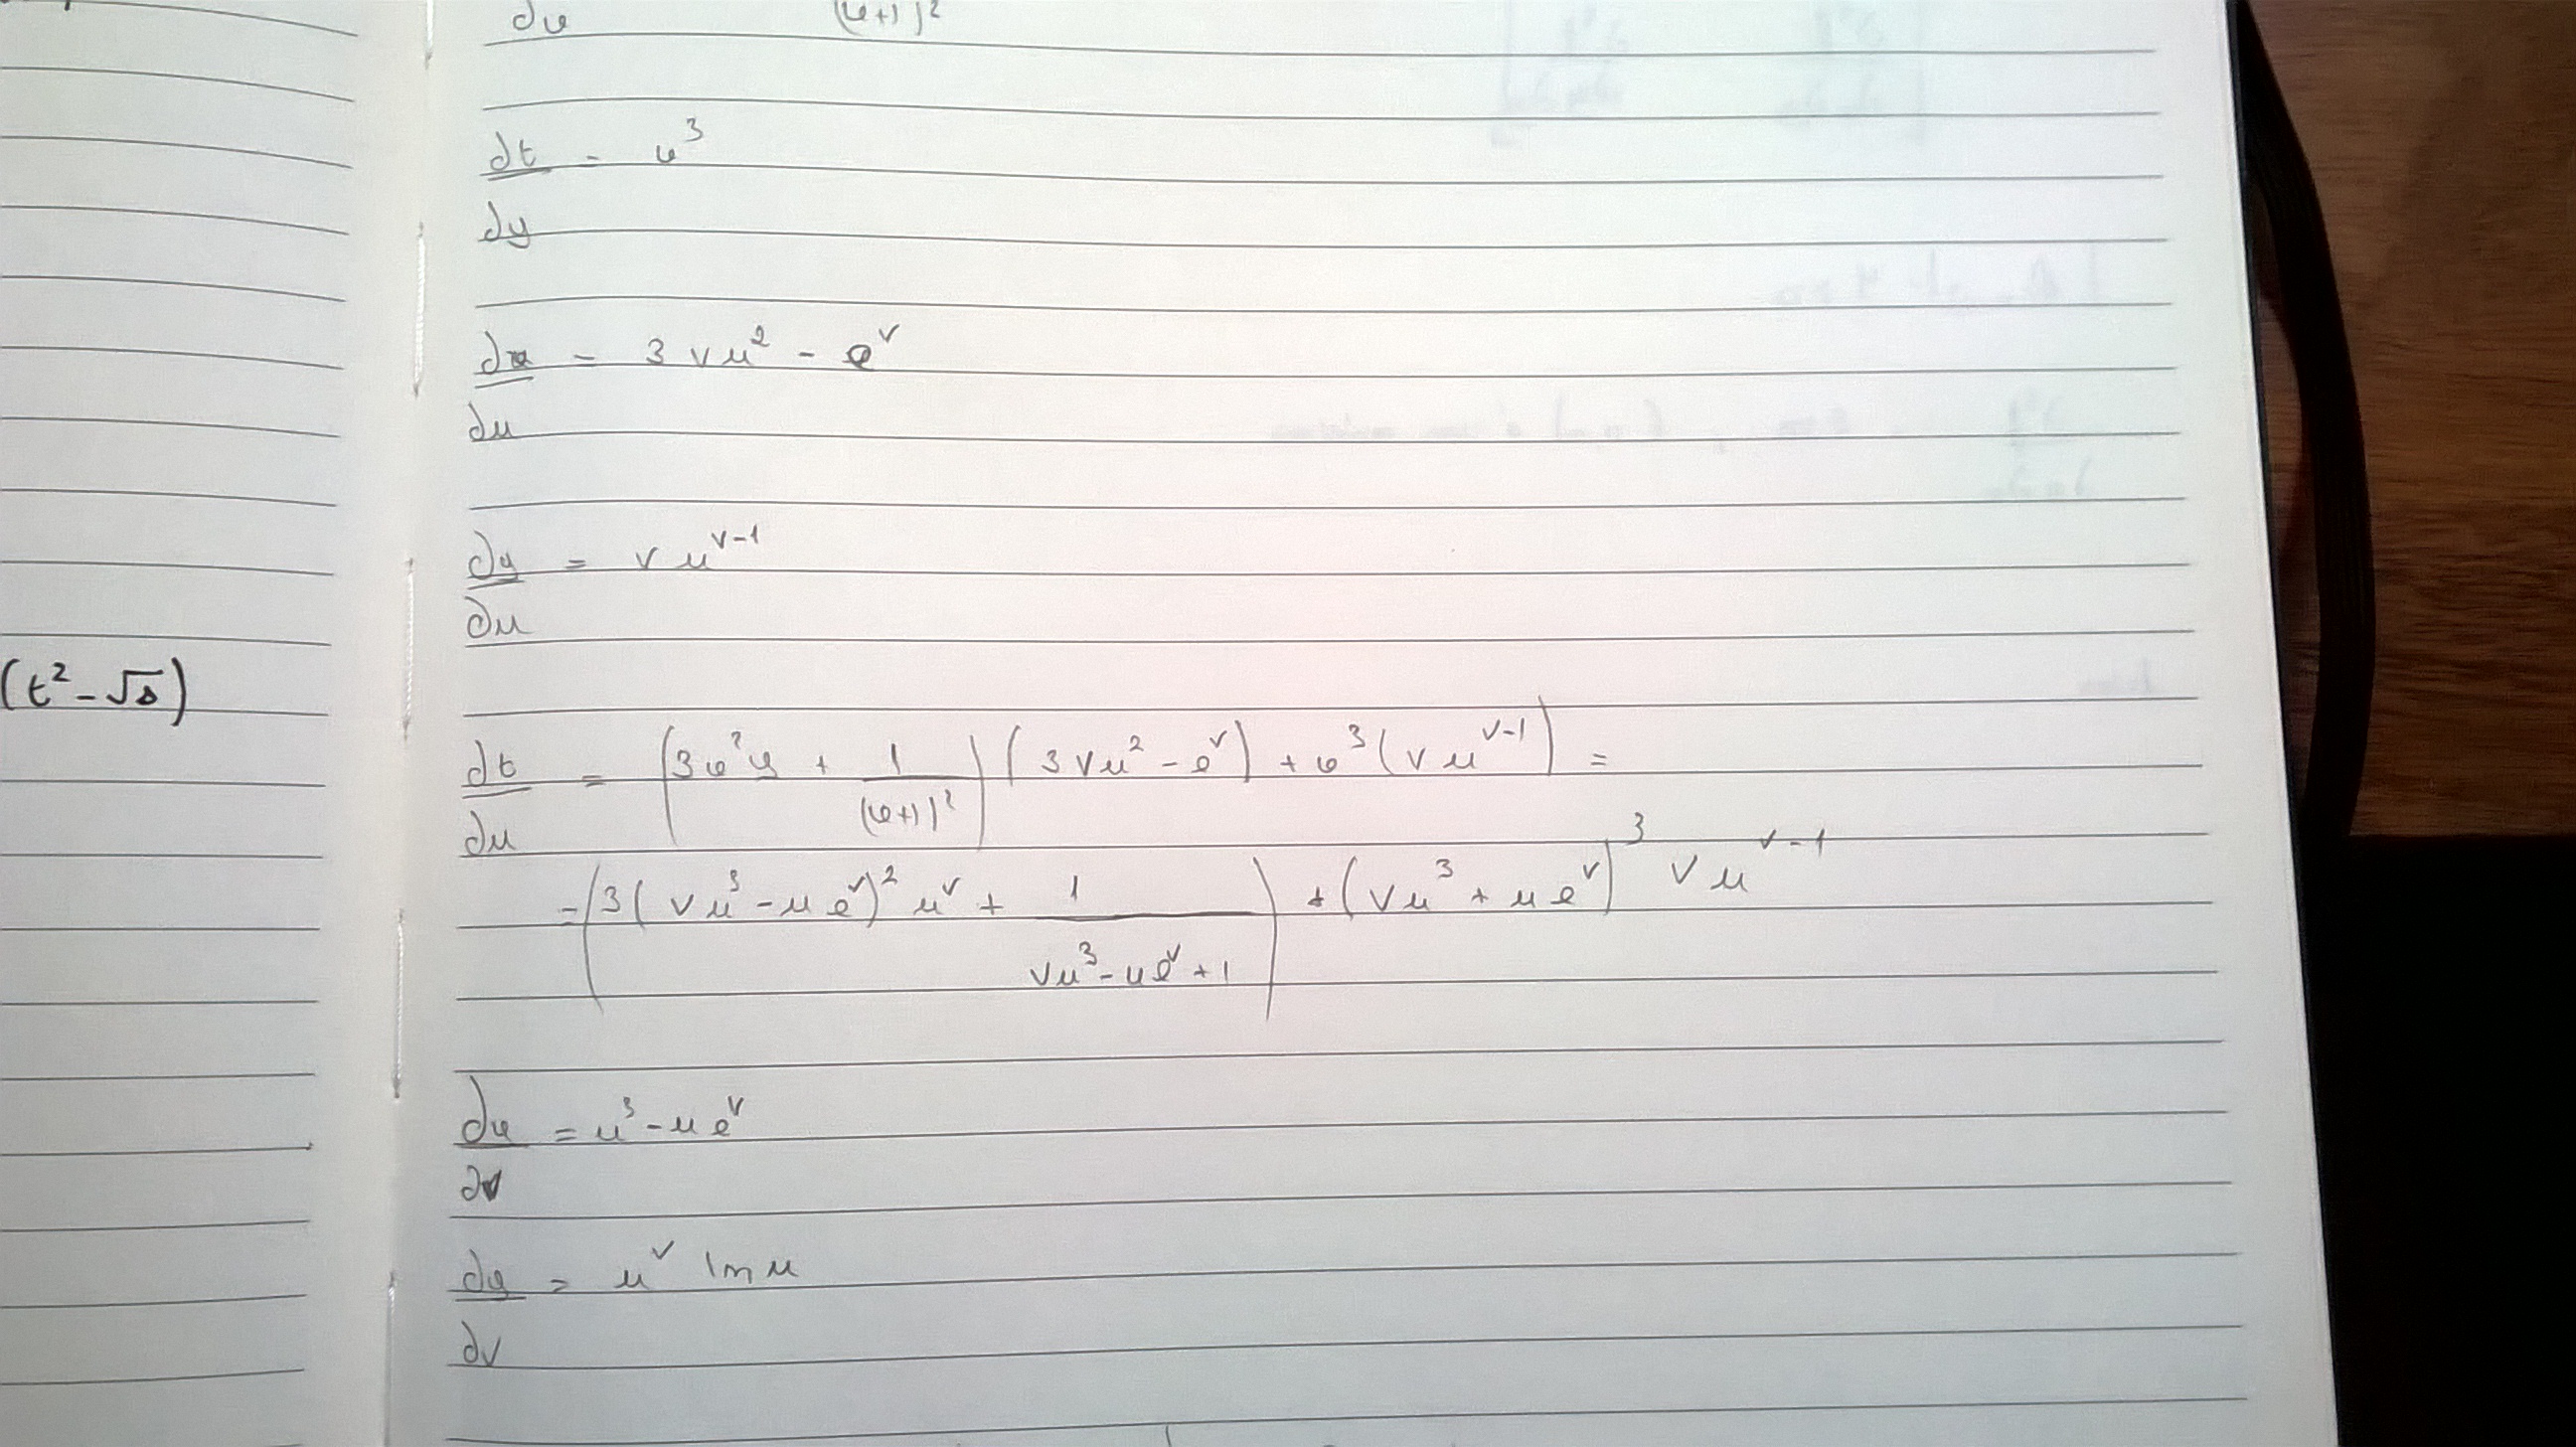 (t² - √s)
∂x (x+1)²
∂t = x³
∂y
∂x = 3 v u² - e^v
∂u
∂y = v u^(v-1)
∂u
∂t = (3x²y + 1/(x+1)²) (3 v u² - e^v) + x³ (v u^(v-1)) =
∂u
= (3(v u³ - u e^v)² u^v + 1/(v u³ - u e^v + 1)) + (v u³ + u e^v)³ v u^(v-1)
∂x = u³ - u e^v
∂v
∂y = u^v ln u
∂v